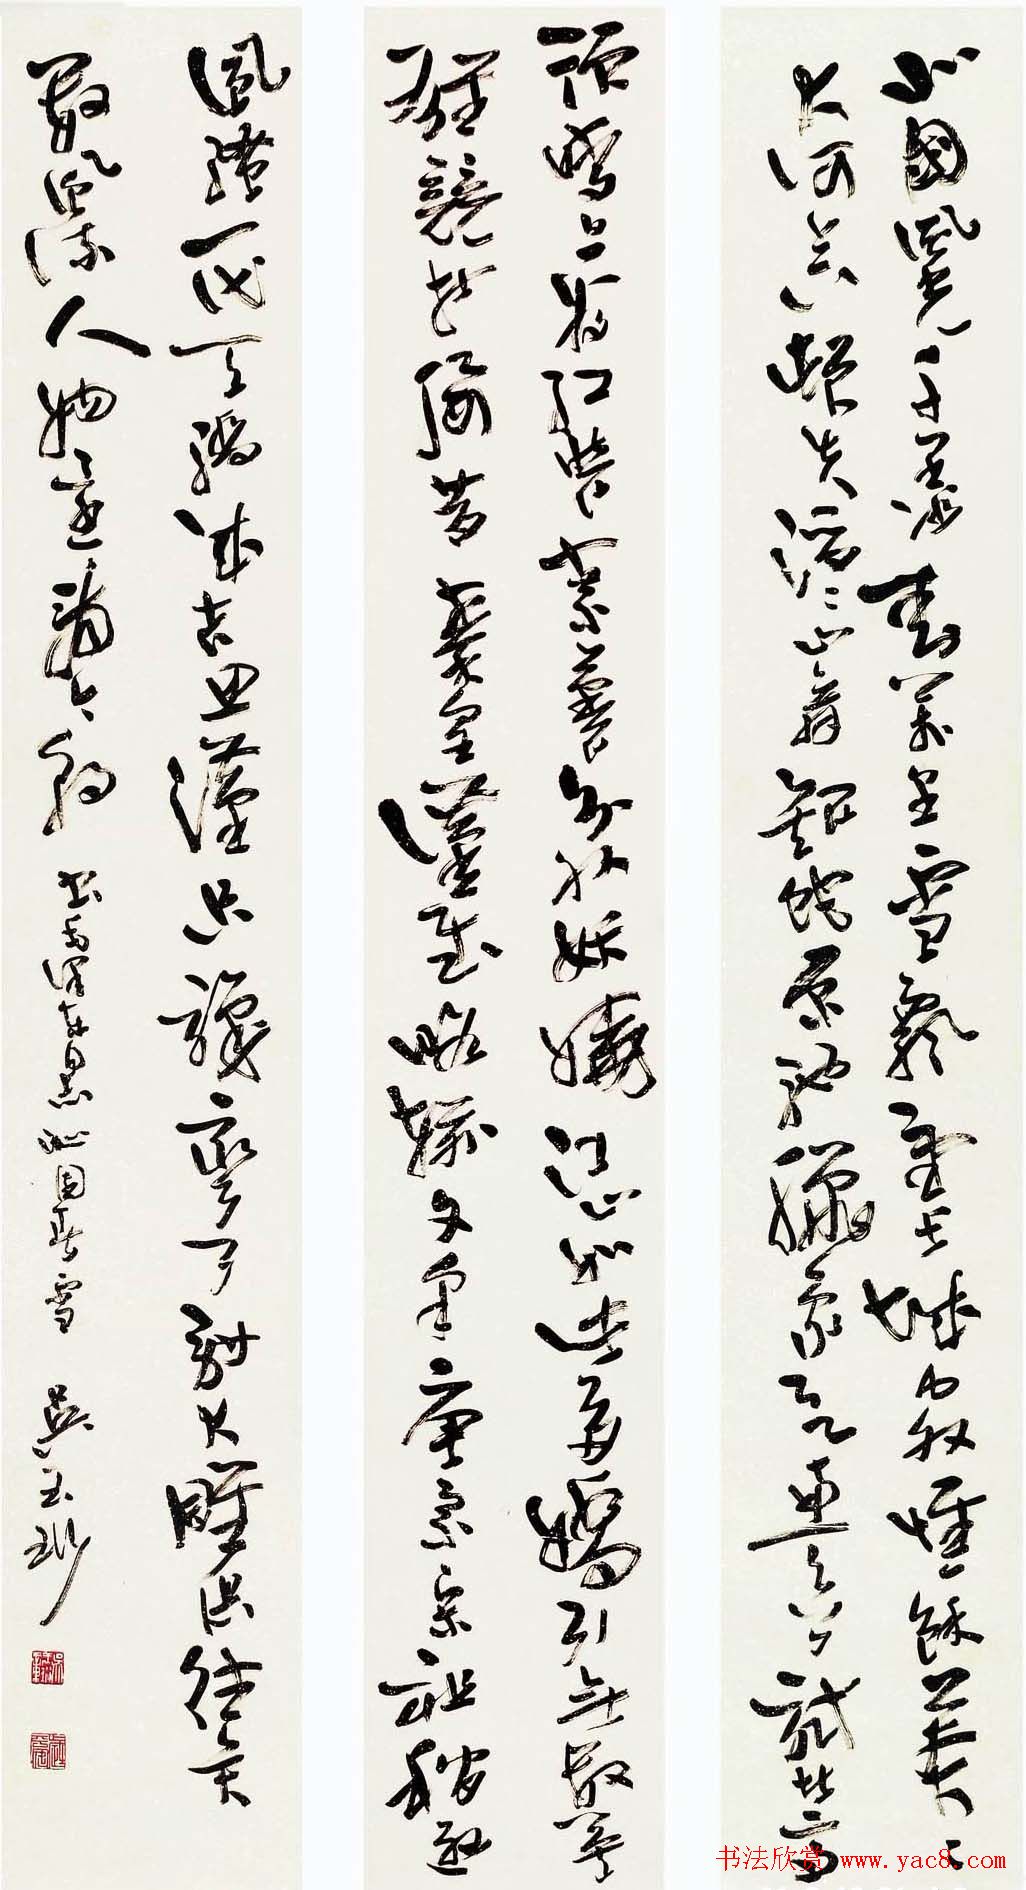 北國風光千里冰封萬里雪飄望長城內外惟餘莽〻
大河上下頓失滔〻山舞銀蛇原馳蠟象欲與天公試比高
須晴日看紅裝素裹分外妖嬈江山如此多嬌引無數英
雄競折腰惜秦皇漢武略輸文采唐宗宋祖稍遜
風騷一代天驕成吉思漢只識彎弓射大雕俱往矣
數風流人物還看今朝 書毛澤東沁園春雪 吳玉
书法欣赏 www.yac8.com